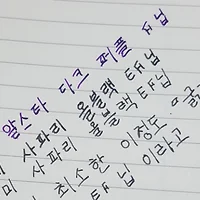 알스타 다크 퍼플 EF닙
사파리 올블랙 EF닙
미 사파리 올블랙 EF닙
최소한 이정도
EF닙 이라고